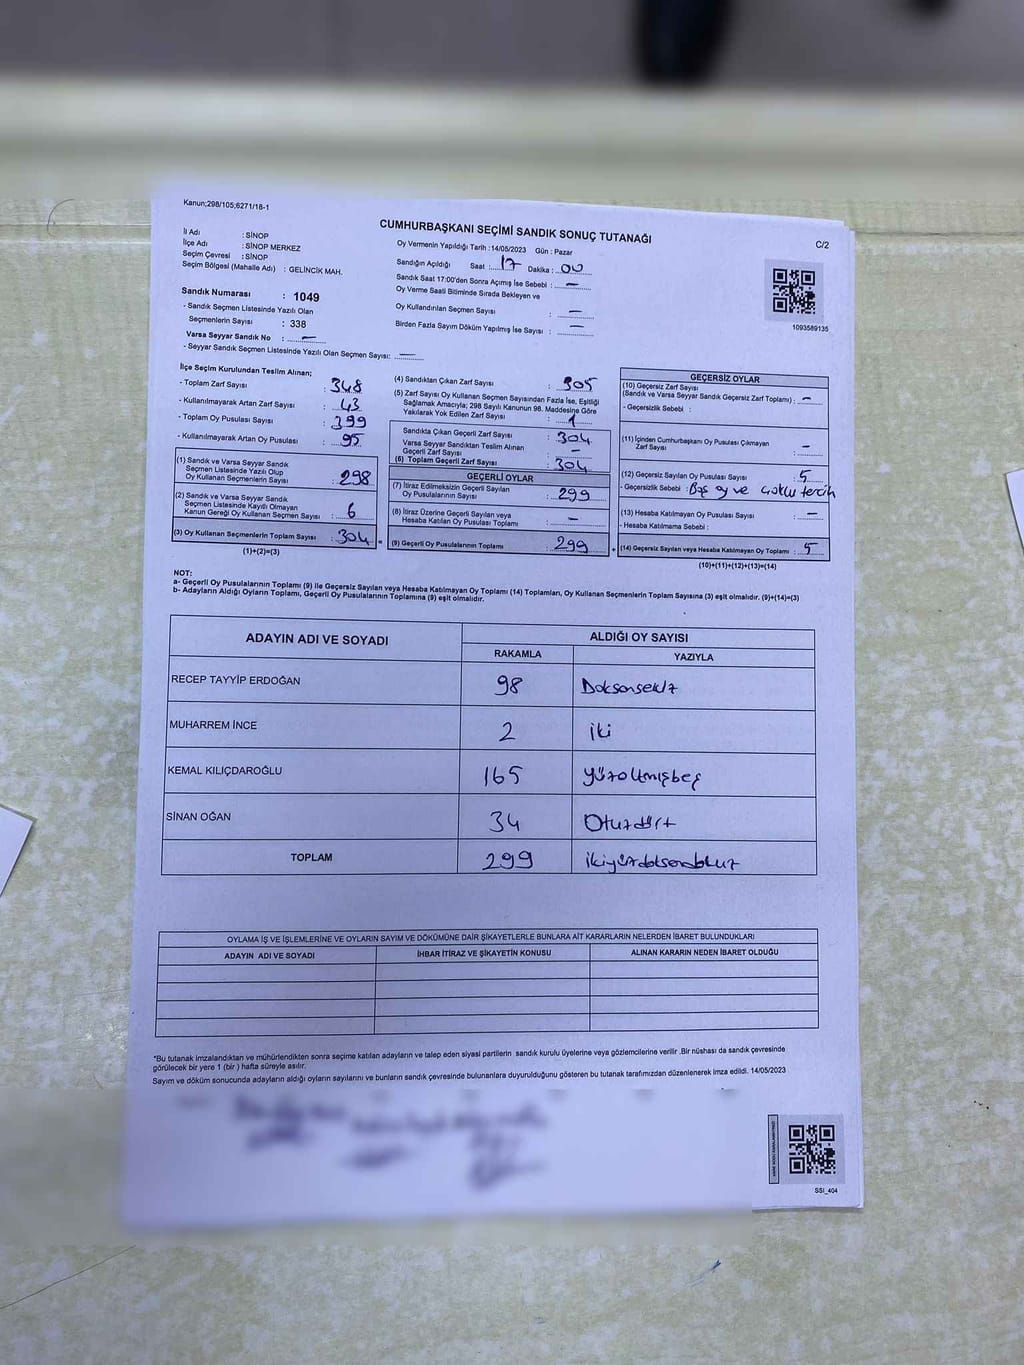 Kanun;298/105;6271/18-1
CUMHURBAŞKANI SEÇİMİ SANDIK SONUÇ TUTANAĞI
C/2
İl Adı : SİNOP
İlçe Adı : SİNOP MERKEZ
Seçim Çevresi : SİNOP
Seçim Bölgesi (Mahalle Adı) : GELİNCİK MAH.
Sandık Numarası : 1049
- Sandık Seçmen Listesinde Yazılı Olan
Seçmenlerin Sayısı : 338
Varsa Seyyar Sandık No : —
- Seyyar Sandık Seçmen Listesinde Yazılı Olan Seçmen Sayısı: —
Oy Vermenin Yapıldığı Tarih : 14/05/2023 Gün : Pazar
Sandığın Açıldığı Saat : 17 Dakika : 00
Sandık Saat 17:00'den Sonra Açımış İse Sebebi : —
Oy Verme Saati Bitiminde Sırada Bekleyen ve
Oy Kullandırılan Seçmen Sayısı : —
Birden Fazla Sayım Döküm Yapılmış İse Sayısı : —
1093589135
İlçe Seçim Kurulundan Teslim Alınan;
- Toplam Zarf Sayısı : 348
- Kullanılmayarak Artan Zarf Sayısı : 43
- Toplam Oy Pusulası Sayısı : 399
- Kullanılmayarak Artan Oy Pusulası : 95
(1) Sandık ve Varsa Seyyar Sandık
Seçmen Listesinde Yazılı Olup
Oy Kullanan Seçmenlerin Sayısı : 298
(2) Sandık ve Varsa Seyyar Sandık
Seçmen Listesinde Kayıtlı Olmayan
Kanun Gereği Oy Kullanan Seçmen Sayısı : 6
(3) Oy Kullanan Seçmenlerin Toplam Sayısı : 304 =
(1)+(2)=(3)
(4) Sandıktan Çıkan Zarf Sayısı : 305
(5) Zarf Sayısı Oy Kullanan Seçmen Sayısından Fazla İse, Eşitliği
Sağlamak Amacıyla; 298 Sayılı Kanunun 98. Maddesine Göre
Yakılarak Yok Edilen Zarf Sayısı : 1
Sandıkta Çıkan Geçerli Zarf Sayısı : 304
Varsa Seyyar Sandıktan Teslim Alınan
Geçerli Zarf Sayısı : —
(6) Toplam Geçerli Zarf Sayısı : 304
GEÇERLİ OYLAR
(7) İtiraz Edilmeksizin Geçerli Sayılan
Oy Pusulalarının Sayısı : 299
(8) İtiraz Üzerine Geçerli Sayılan veya
Hesaba Katılan Oy Pusulaları Toplamı : —
(9) Geçerli Oy Pusulalarının Toplamı : 299 +
GEÇERSİZ OYLAR
(10) Geçersiz Zarf Sayısı
(Sandık ve Varsa Seyyar Sandık Geçersiz Zarf Toplamı) : —
- Geçersizlik Sebebi :
(11) İçinden Cumhurbaşkanı Oy Pusulası Çıkmayan
Zarf Sayısı : —
(12) Geçersiz Sayılan Oy Pusulası Sayısı : 5
- Geçersizlik Sebebi : Boş oy ve çoklu tercih
(13) Hesaba Katılmayan Oy Pusulası Sayısı : —
- Hesaba Katılmama Sebebi :
(14) Geçersiz Sayılan veya Hesaba Katılmayan Oy Toplamı : 5
(10)+(11)+(12)+(13)=(14)
NOT:
a- Geçerli Oy Pusulalarının Toplamı (9) ile Geçersiz Sayılan veya Hesaba Katılmayan Oy Toplamı (14) Toplamları, Oy Kullanan Seçmenlerin Toplam Sayısına (3) eşit olmalıdır. (9)+(14)=(3)
b- Adayların Aldığı Oyların Toplamı, Geçerli Oy Pusulalarının Toplamına (9) eşit olmalıdır.
ADAYIN ADI VE SOYADI
ALDIĞI OY SAYISI
RAKAMLA YAZIYLA
RECEP TAYYİP ERDOĞAN 98 Doksansekiz
MUHARREM İNCE 2 iki
KEMAL KILIÇDAROĞLU 165 yüzaltmışbeş
SİNAN OĞAN 34 Otuzdört
TOPLAM 299 ikiyüzdoksandokuz
OYLAMA İŞ VE İŞLEMLERİNE VE OYLARIN SAYIM VE DÖKÜMÜNE DAİR ŞİKAYETLERLE BUNLARA AİT KARARLARIN NELERDEN İBARET BULUNDUKLARI
ADAYIN ADI VE SOYADI İHBAR İTİRAZ VE ŞİKAYETİN KONUSU ALINAN KARARIN NEDEN İBARET OLDUĞU
*Bu tutanak imzalandıktan ve mühürlendikten sonra seçime katılan adayların ve talep eden siyasi partilerin sandık kurulu üyelerine veya gözlemcilerine verilir .Bir nüshası da sandık çevresinde
görülecek bir yere 1 (bir ) hafta süreyle asılır.
Sayım ve döküm sonucunda adayların aldığı oyların sayılarını ve bunların sandık çevresinde bulunanlara duyurulduğunu gösteren bu tutanak tarafımızdan düzenlenerek imza edildi. 14/05/2023
SSI_404